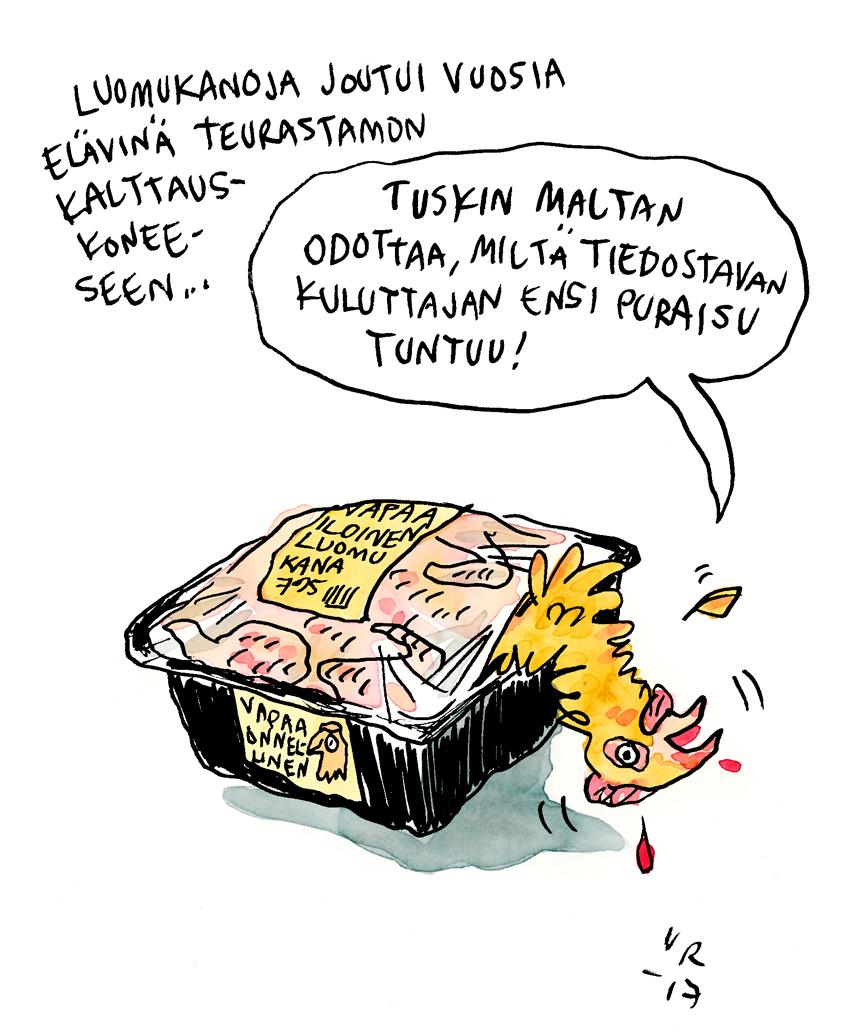 LUOMUKANOJA JOUTUI VUOSIA
ELÄVINÄ TEURASTAMON
KALTTAUS-
KONEE-
SEEN...
TUSKIN MALTAN
ODOTTAA, MILTÄ TIEDOSTAVAN
KULUTTAJAN ENSI PURAISU
TUNTUU!
VAPAA
ILOINEN
LUOMU
KANA
7,95
VAPAA
ONNEL-
LINEN
VR
-17